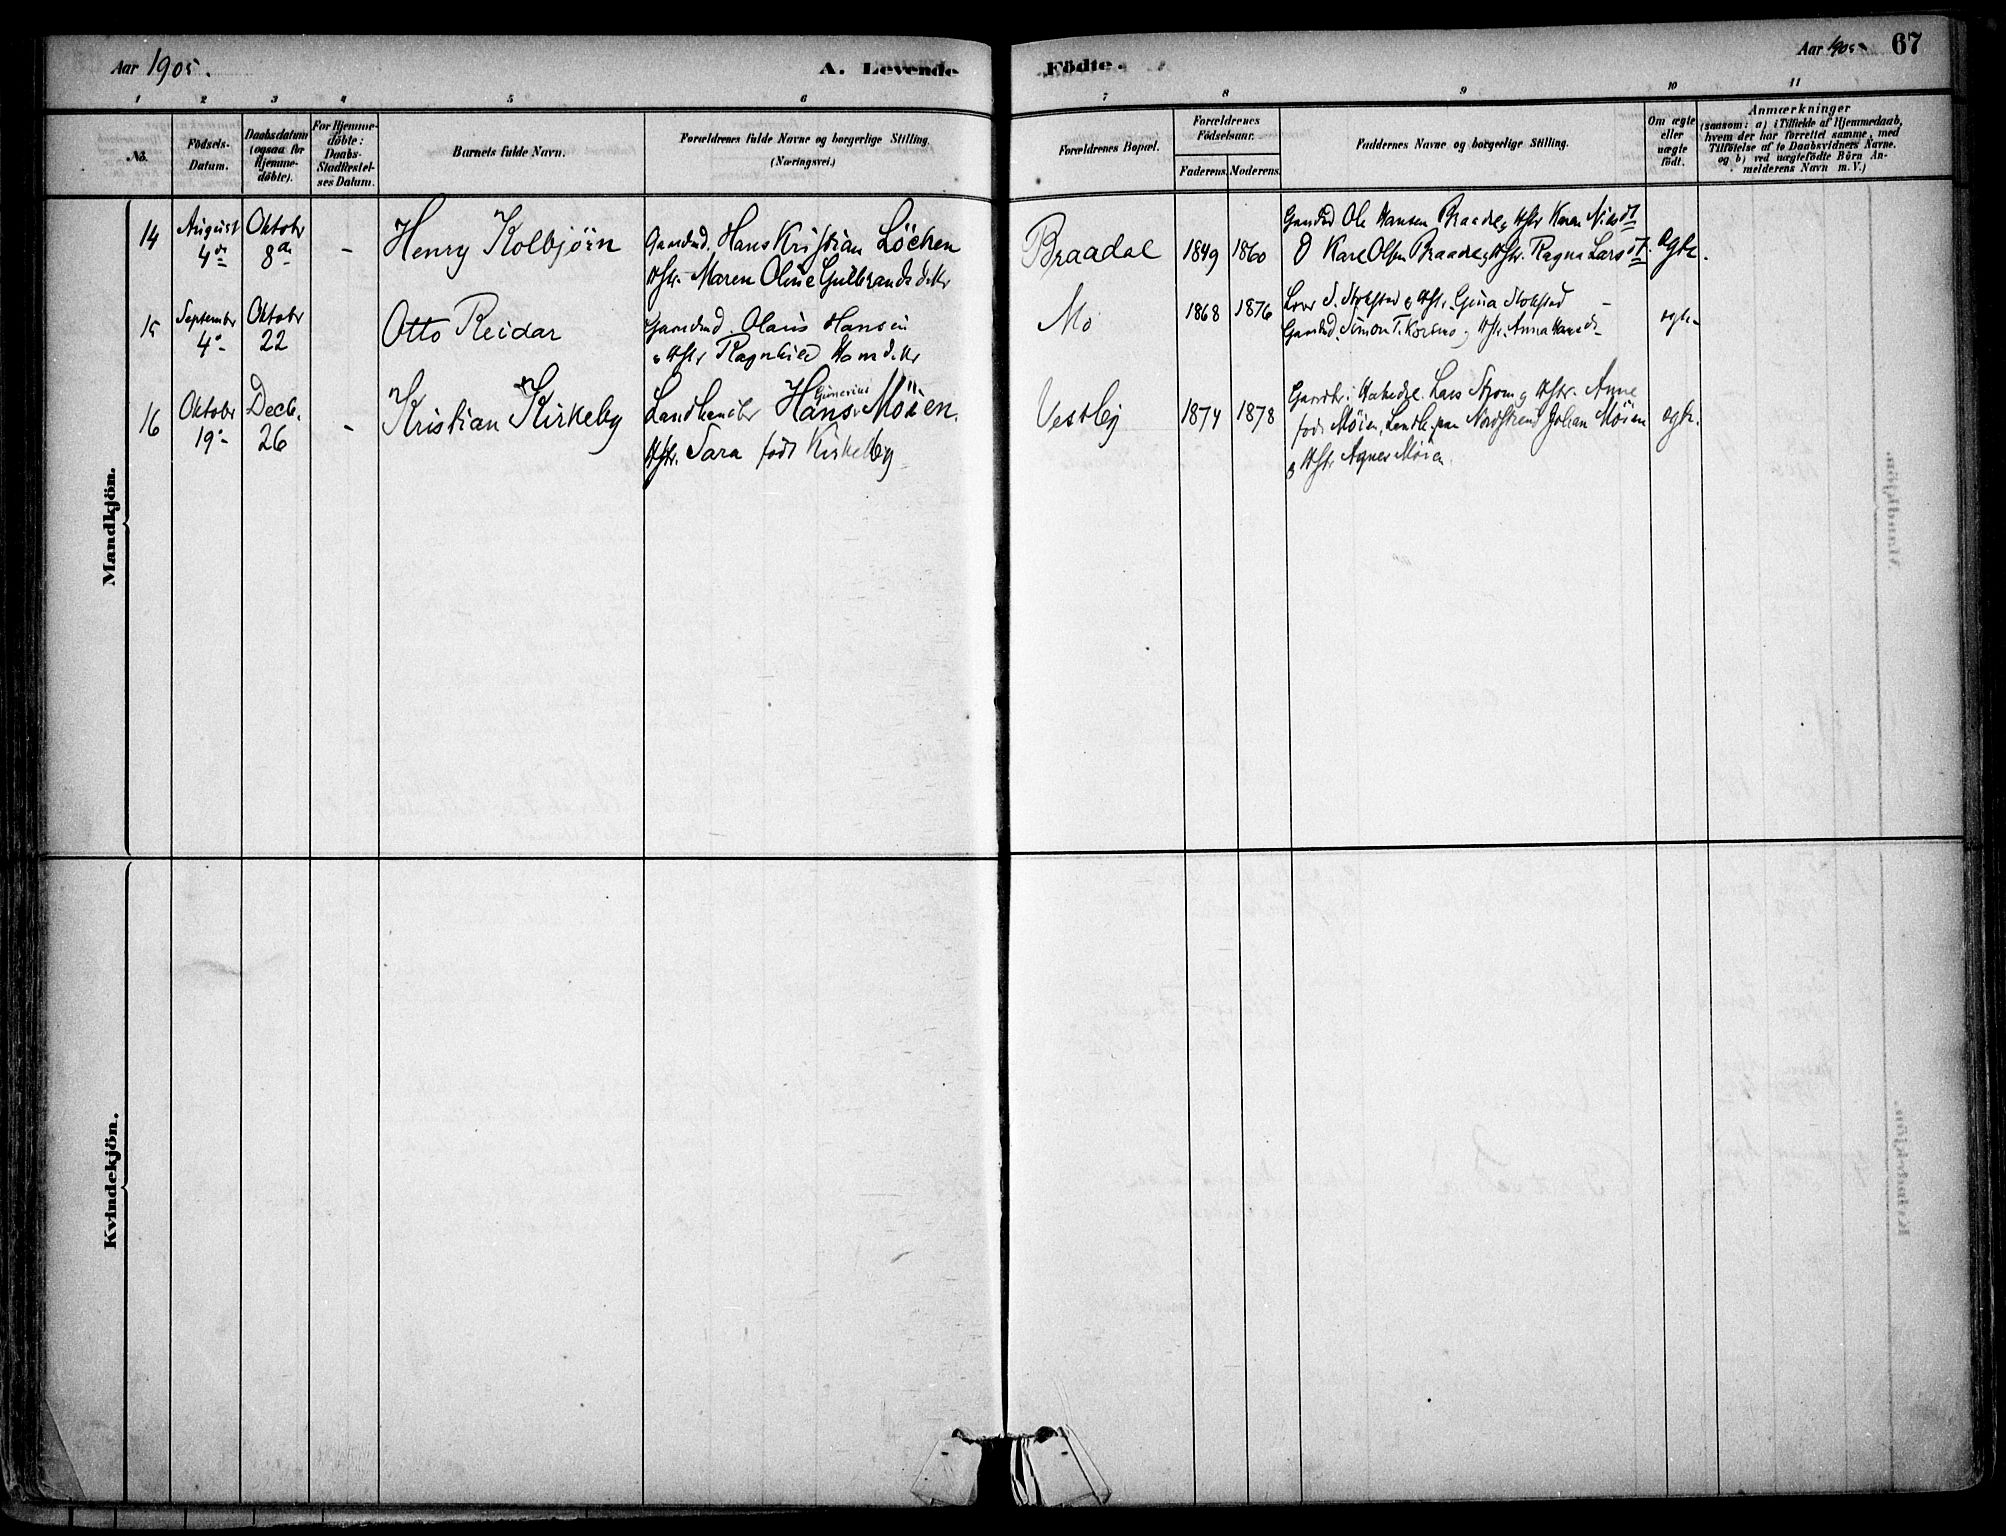 Aar 1905.
A. Levende
Födte.
Aar 1905
67
1 2 3 4 5 6 7 8 9 10 11
No.
Födsels-
Datum.
Daabsdatum
(ogsaa for
Hjemme-
döbte).
For Hjemme-
döbte:
Daabs-
Stadfæstel-
ses Datum.
Barnets fulde Navn.
Forældrenes fulde Navne og borgerlige Stilling.
(Næringsvei.)
Forældrenes Bopæl.
Forældrenes
Födselsaar.
Faderens. Moderens.
Faddernes Navne og borgerlige Stilling.
Om ægte
eller
uægte
födt.
Anmærkninger
(saasom: a) i Tilfælde af Hjemmedaab,
hvem der har forrettet samme, med
Tilföielse af to Daabsvidners Navne.
og b) ved uægtefödte Börn An-
melderens Navn m. V.)
Mandkjön.
14 August Oktobr
4de 8de -
Henry Kolbjørn
Gaardmd. Hans Kristian Løchen
Hstr. Maren Oline Gulbrandsdattr
Braadal 1849 1860
Gaardmd Ole Hansen Braadal, Hstr Karen
Karl Olsen Braadal, Hstr. Ragna Larsdt.
ægte.
15 September Oktobr
4de 22
Otto Reidar
Gaardmd. Olaus Hansen
og Hstr Ragnhild
Mo 1868 1876
S. Stokstad og Hstr. Gina Stokstad
Gaardmd. Simon T. Korsmo og Hstr. Anna
ægte
16 Oktobr Decb.
19de 26 -
Kristian Kirkeby
Landhandler Hans Gunerius Möien.
Hstr. Sara født Kirkeby
Vestby 1874 1878
Lars Strom og Hstr. Anne
født Møien, Landh. paa Nordstrand Johan Möien
og Hstr Agnes Møien.
ægte.
Kvindekjön.